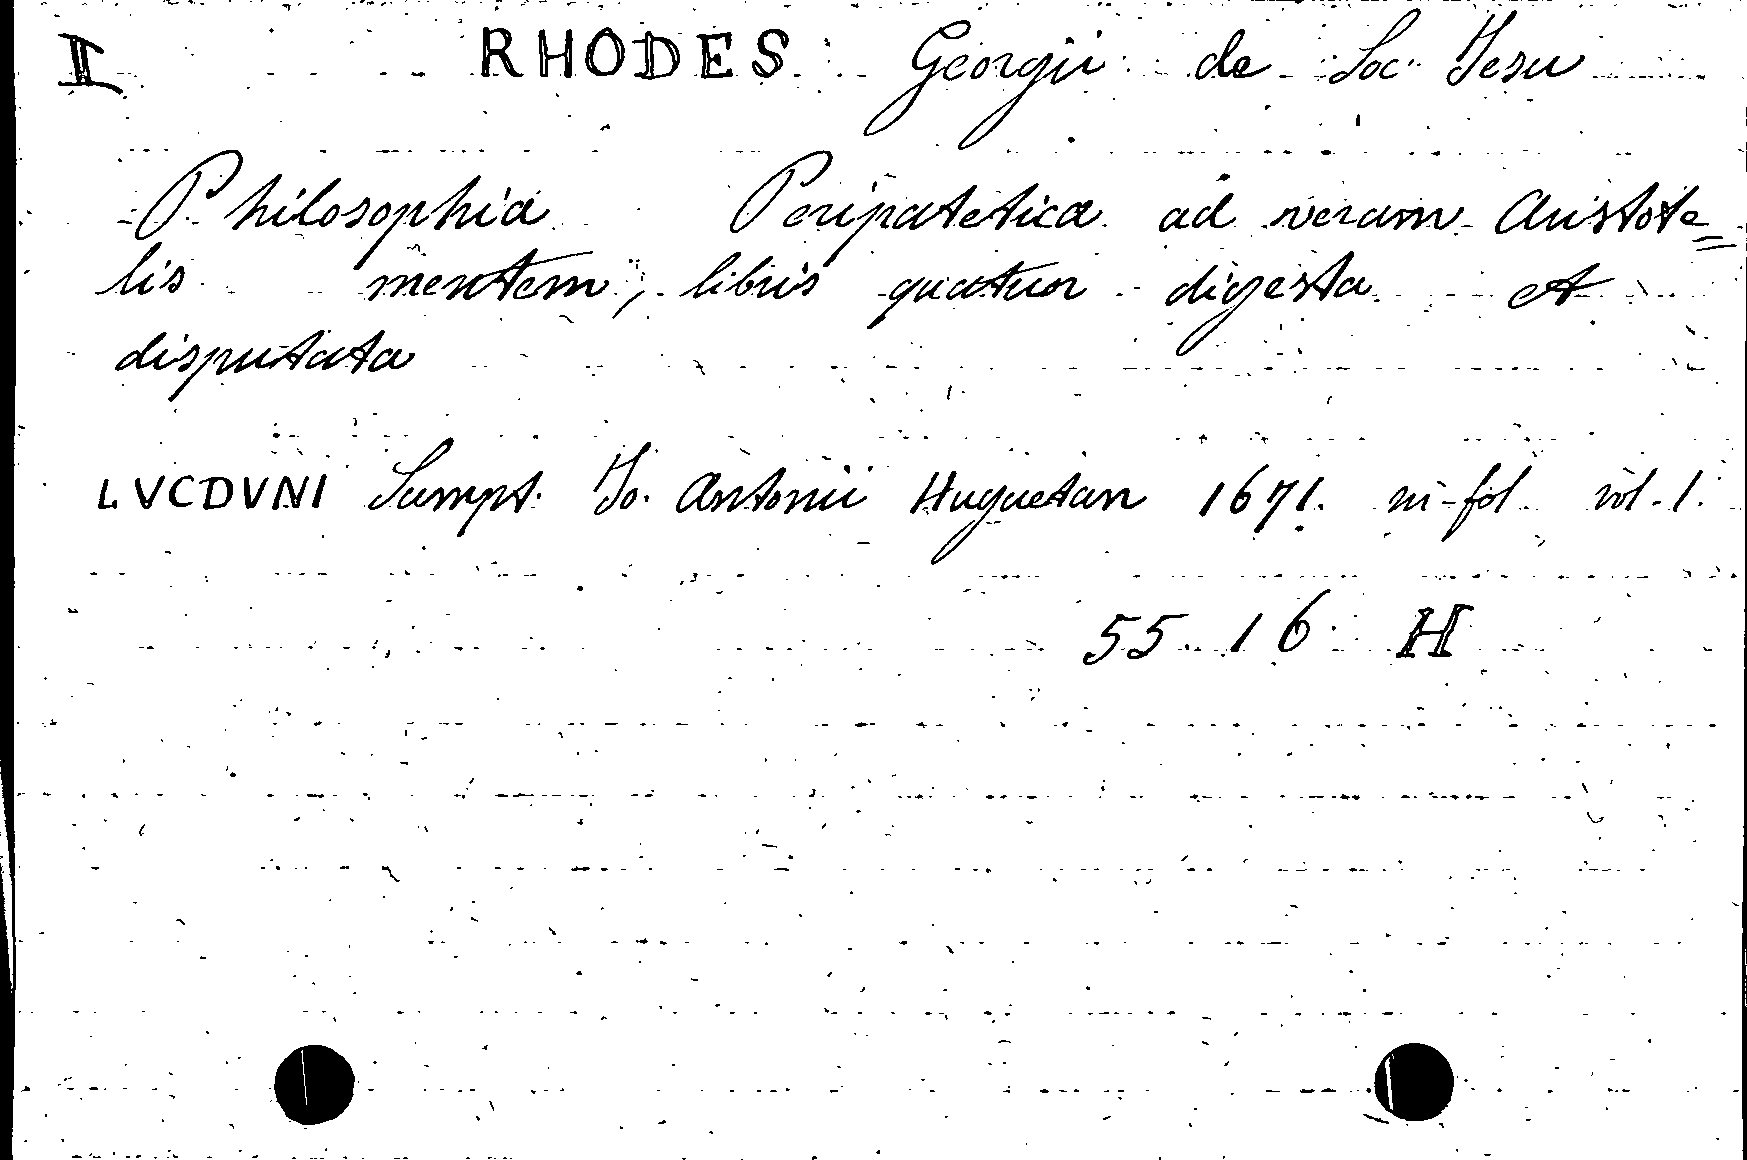 I RHODES Georgii de Soc. Jesu
Philosophia Peripatetica ad veram Aristote=
lis mentem, libris quatuor digesta et
disputata
LVCDVNI Sumpt. Jo. Antonii Huguetan 1671. in-fol. vol. 1.
55. 16 H